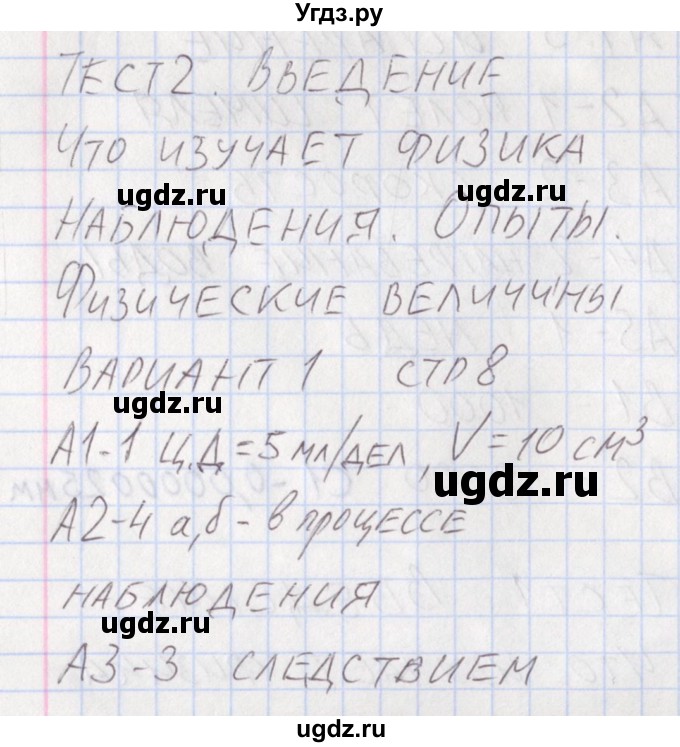 Угдз.ру
ТЕСТ 2. ВВЕДЕНИЕ
ЧТО ИЗУЧАЕТ ФИЗИКА
ugdz.ru ugdz.ru
НАБЛЮДЕНИЯ. ОПЫТЫ.
ФИЗИЧЕСКИЕ ВЕЛИЧИНЫ
ВАРИАНТ 1 СТР 8
ugdz.ru
А1-1 Ц.Д=5 мл/дел, V=10 см³
ugdz.ru
А2-4 а,б - в процессе
НАБЛЮДЕНИЯ
ugdz.ru
А3-3 СЛЕДСТВИЕМ
ugdz.ru